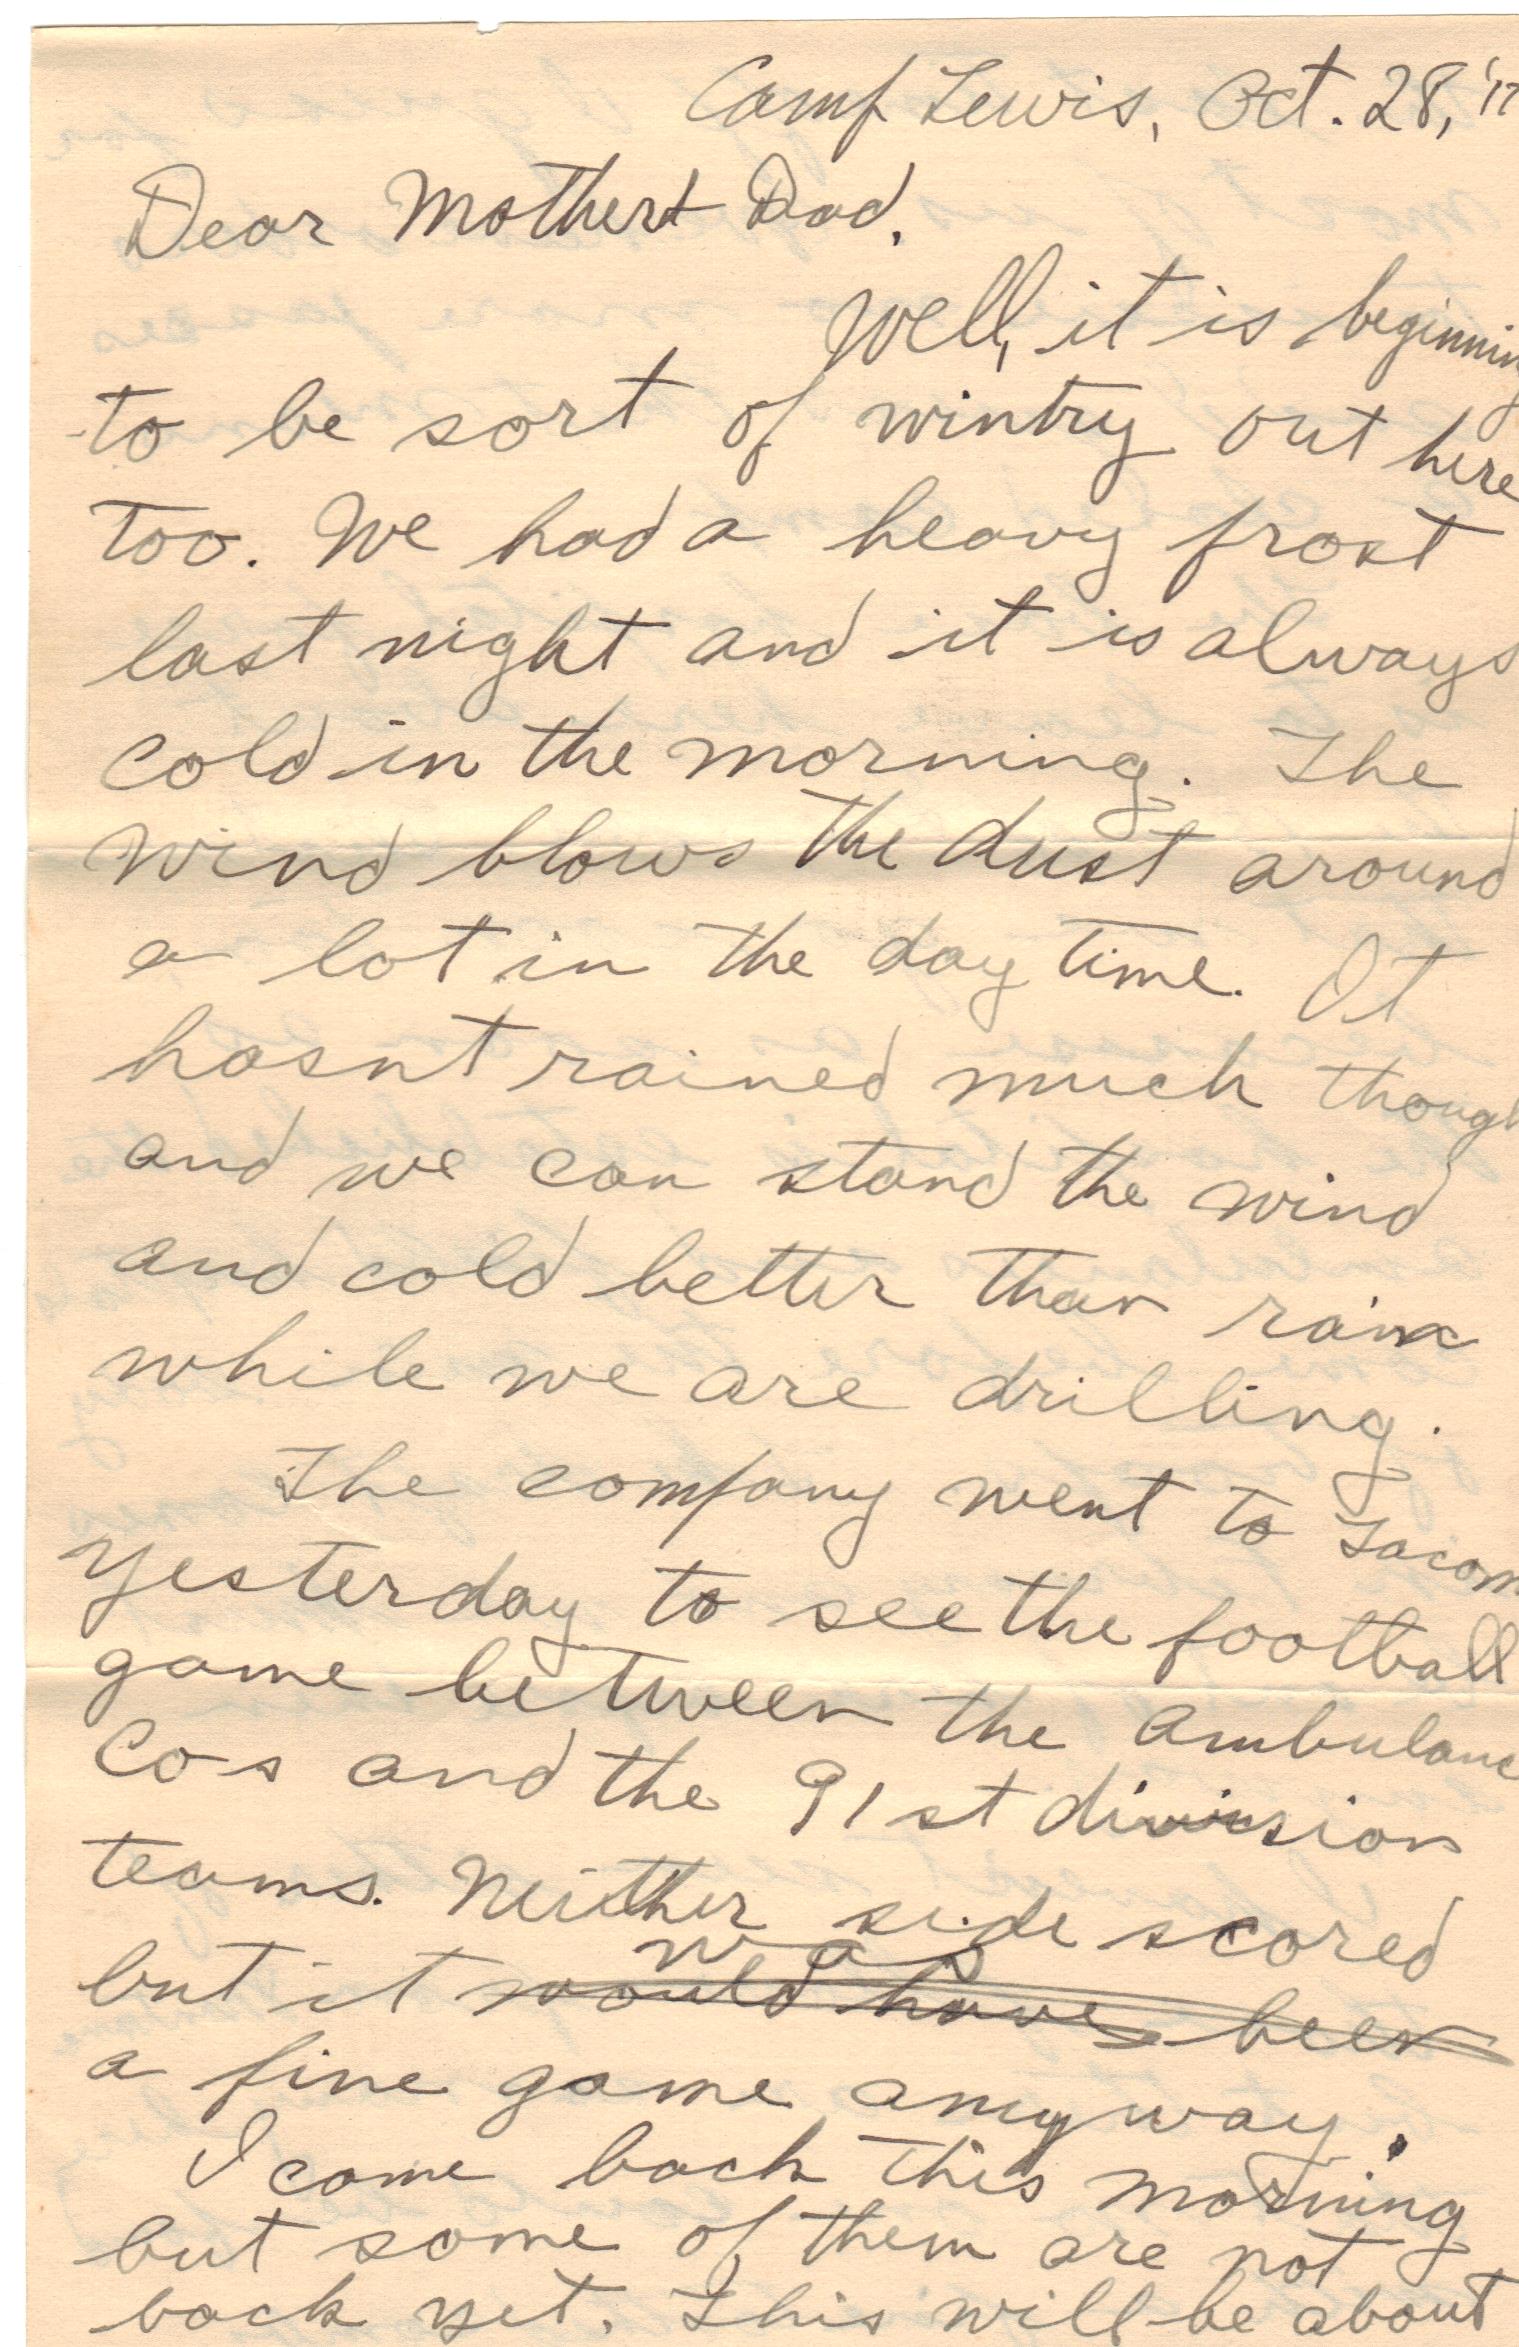 Camp Lewis, Oct. 28, '17
Dear Mother + Dad,
Well, it is beginning
to be sort of wintry out here
too. We had a heavy frost
last night and it is always
cold in the morning. The
wind blows the dust around
a lot in the day time. It
hasnt rained much though
and we can stand the wind
and cold better than rain
while we are drilling.
The company went to Tacom
yesterday to see the football
game between the ambulanc
Cos and the 91st division
teams. Neither side scored
was
but it would have been
a fine game anyway.
I came back this morning
but some of them are not
back yet. This will be about